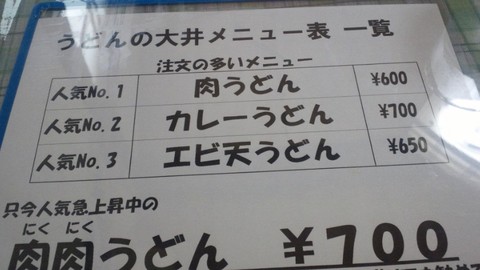 うどんの大井メニュー表 一覧
注文の多いメニュー
人気No.1 肉うどん ¥600
人気No.2 カレーうどん ¥700
人気No.3 エビ天うどん ¥650
只今人気急上昇中の
にく にく
肉肉うどん ¥700